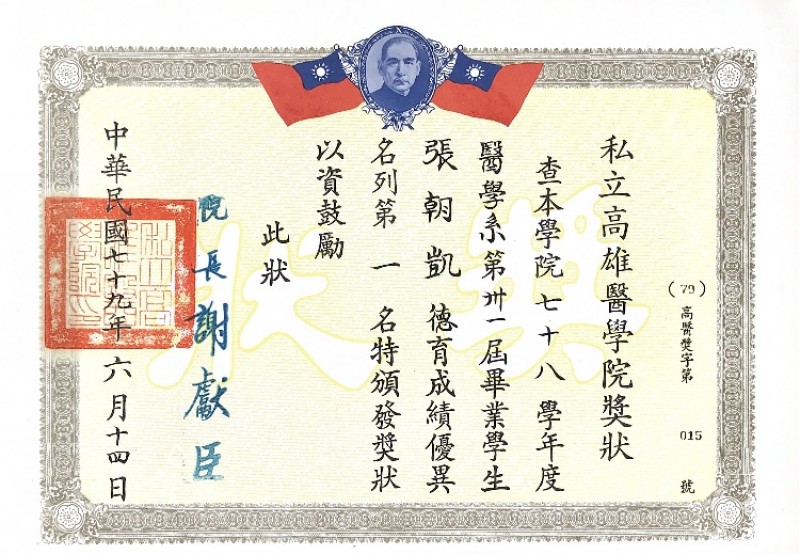 私立高雄醫學院獎狀
(79)高醫獎字第 015 號
查本學院七十八學年度
醫學系第卅一屆畢業學生
張朝凱德育成績優異
名列第一名特頒發獎狀
以資鼓勵
此狀
院長謝獻臣
中華民國七十九年六月十四日
獎狀